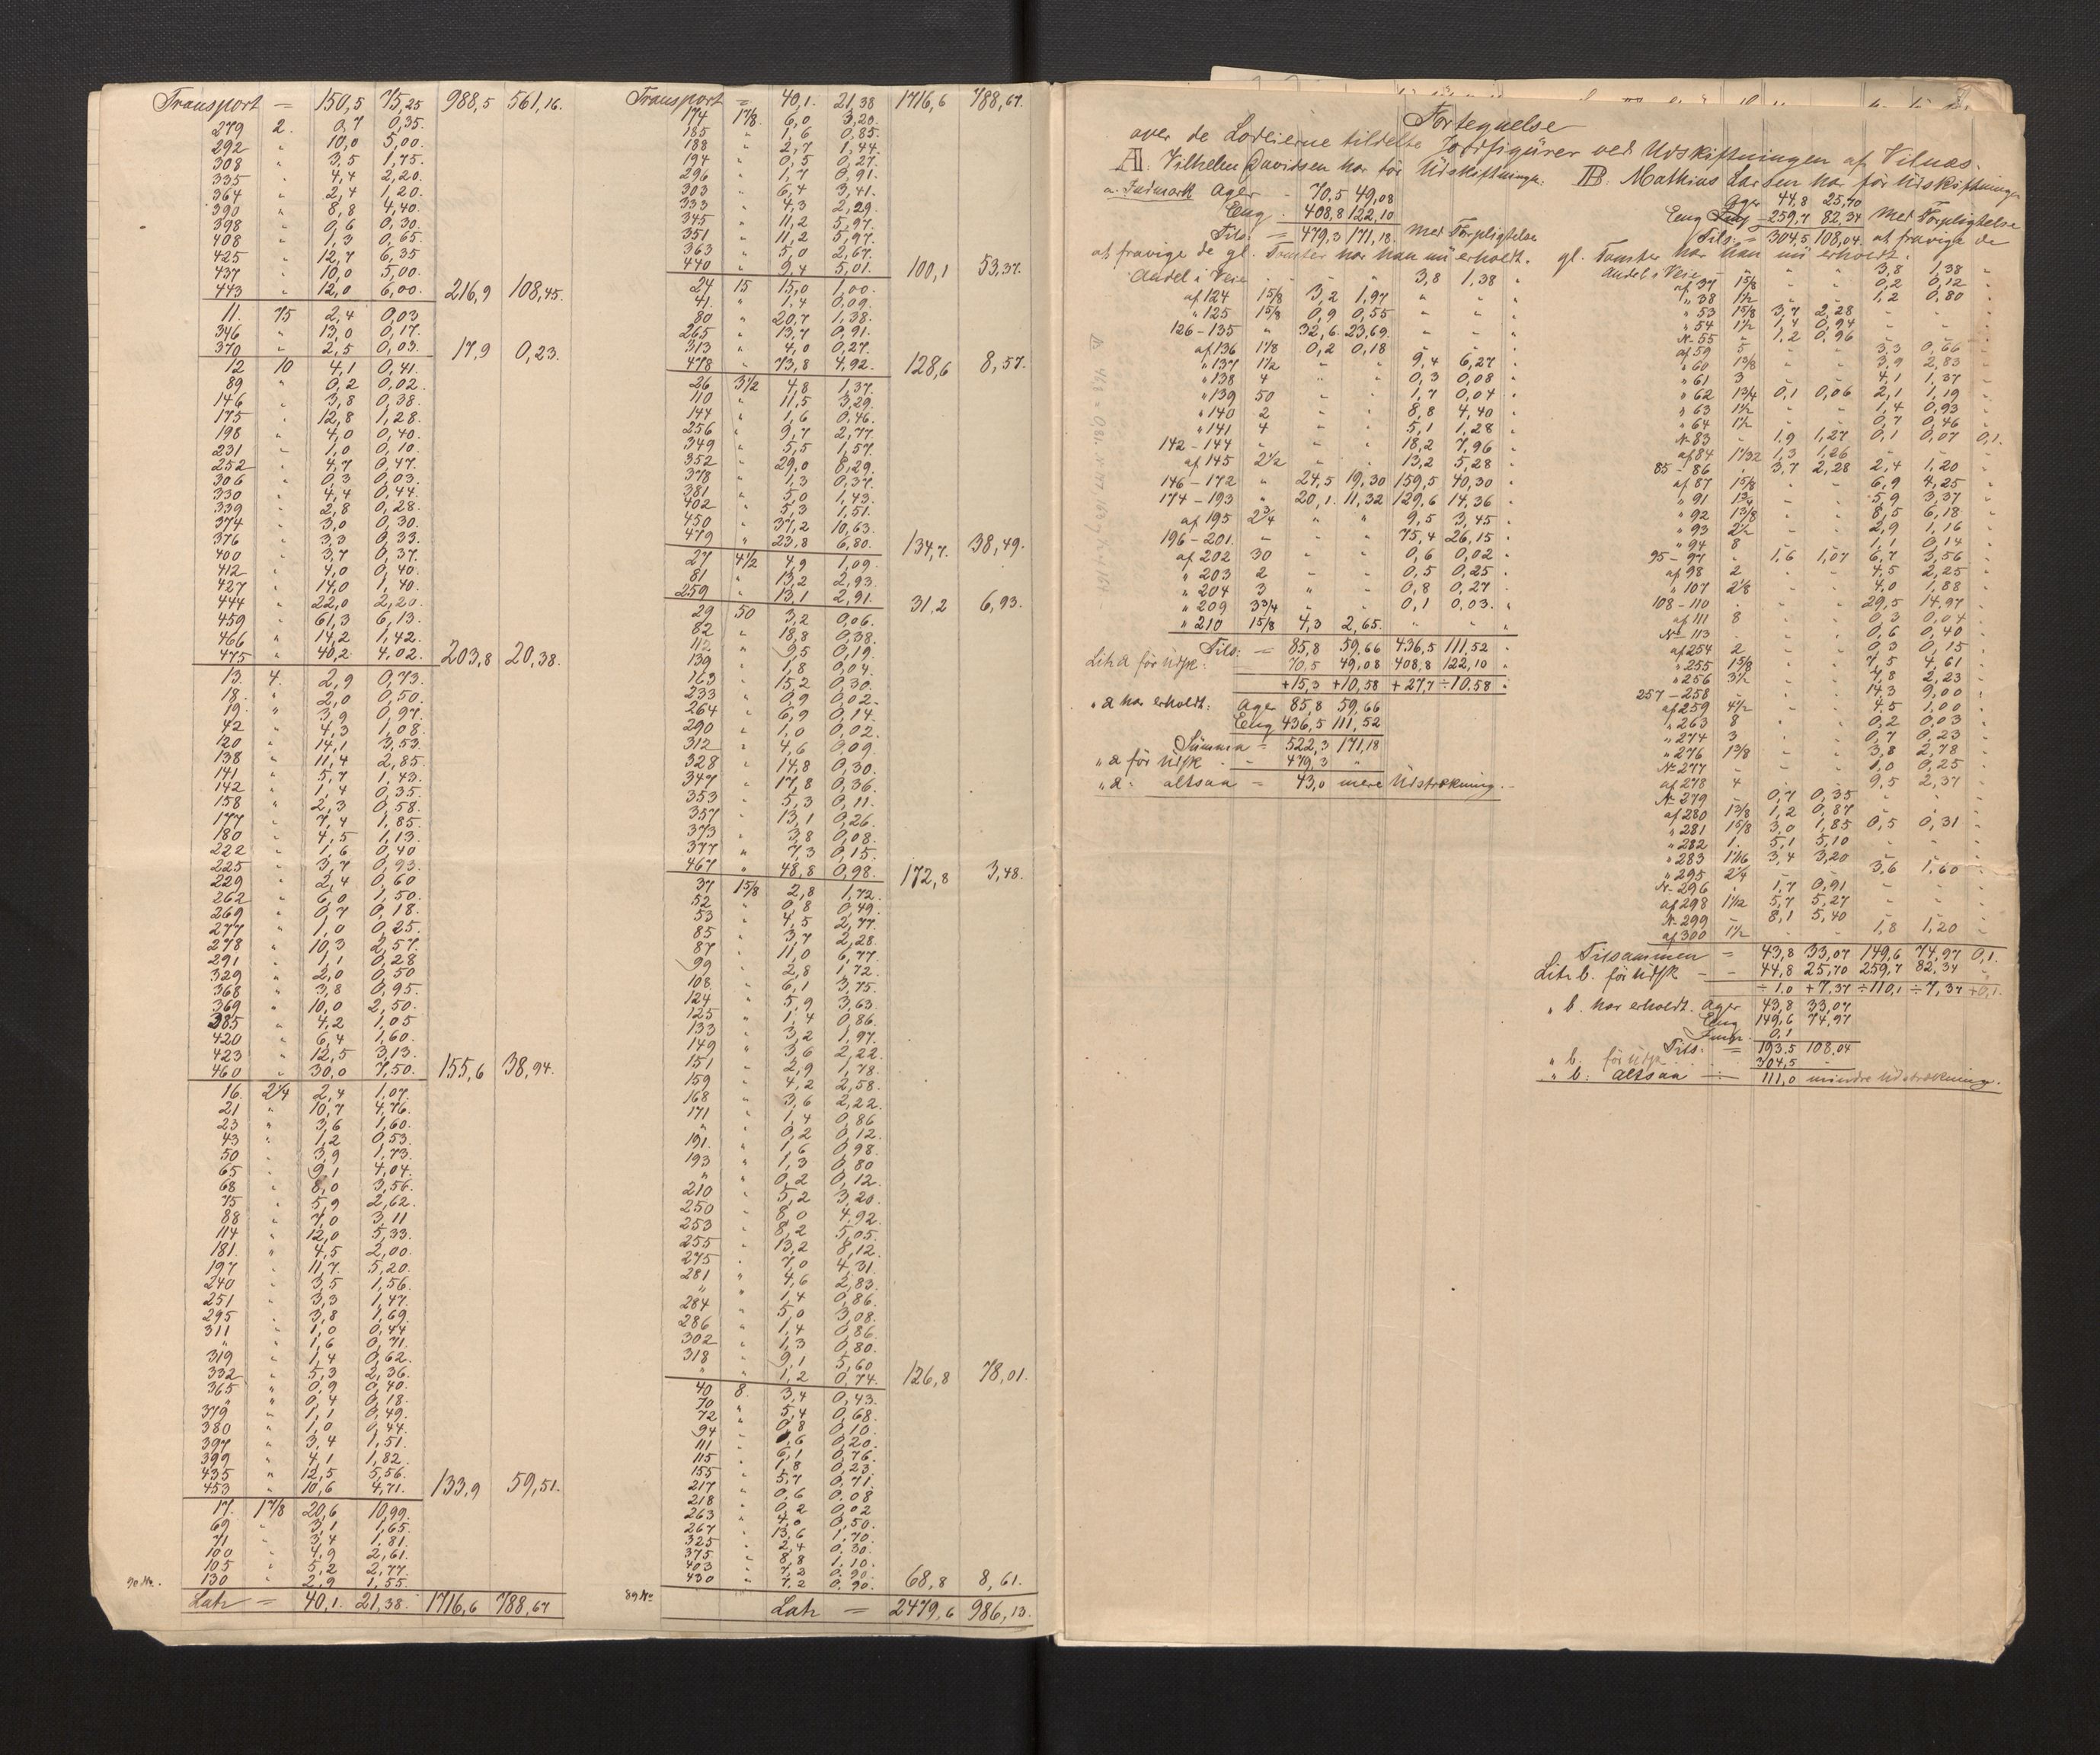 Transport = 150,5 75,25 988,5 561,16.
279 2. 0,7 0,35.
292 " 10,0 5,00.
308 " 3,5 1,75.
335 " 4,4 2,20.
364 " 2,4 1,20.
390 " 8,8 4,40.
398 " 0,6 0,30.
408 " 1,3 0,65.
425 " 12,7 6,35
437 " 10,0 5,00.
443 " 12,0 6,00. 216,9 108,45.
11. 75 2,4 0,03
346 " 13,0 0,17.
370 " 2,5 0,03. 17,9 0,23.
12 10 4,1 0,41.
89 " 0,2 0,02.
146 " 3,8 0,38.
175 " 12,8 1,28.
198 " 4,0 0,40.
231 " 1,0 0,10.
252 " 4,7 0,47.
306 " 0,3 0,03.
330 " 4,4 0,44.
339 " 2,8 0,28.
374 " 3,0 0,30.
376 " 3,3 0,33.
400 " 3,7 0,37.
412 " 4,0 0,40.
427 " 14,0 1,40.
444 " 22,0 2,20.
459 " 61,3 6,13.
466 " 14,2 1,42.
475 " 40,2 4,02. 203,8 20,38.
13. 4. 2,9 0,73.
18. " 2,0 0,50.
19. " 3,9 0,97.
42 " 4,3 1,08.
120 " 14,1 3,53.
138 " 11,4 2,85.
141 " 5,7 1,43.
142 " 1,4 0,35.
158 " 2,3 0,58.
177 " 7,4 1,85.
180 " 4,5 1,13.
222 " 1,6 0,40
225 " 3,7 0,93.
229 " 2,4 0,60
262 " 6,0 1,50.
269 " 0,7 0,18.
277 " 1,0 0,25.
278 " 10,3 2,57.
291 " 1,1 0,28
329 " 2,0 0,50
368 " 3,8 0,95.
369 " 10,0 2,50.
385 " 4,2 1,05
420 " 6,4 1,60.
423 " 12,5 3,13.
460 " 30,0 7,50. 155,6 38,94.
16. 2¼ 2,4 1,07.
21 " 10,7 4,76.
23 " 3,6 1,60.
43 " 1,2 0,53.
50 " 3,9 1,73.
65 " 9,1 4,04.
68 " 8,0 3,56.
75 " 5,9 2,62.
88 " 7,0 3,11
114 " 12,0 5,33.
181. " 4,5 2,00.
197 " 11,7. 5,20.
240 " 3,5 1,56.
251 " 3,3 1,47.
295. " 3,8 1,69.
311 " 1,0 0,44
" " 1,6 0,71.
319 " 1,4 0,62.
332 " 5,3 2,36.
365 " 0,9 0,40.
" " 0,4 0,18.
379 " 1,1 0,49.
380 " 1,0 0,44.
397 " 3,4 1,51.
399 " 4,1 1,82.
435 " 12,5 5,56.
453 " 10,6 4,71. 133,9 59,51.
17. 1⅞ 20,6 10,99.
69 " 3,1 1,65.
71 " 3,4 1,81.
100 " 4,9 2,61.
105 " 5,2 2,77.
130 " 2,9 1,55.
90 No.
Latr = 40,1. 21,38. 1716,6 788,67
Transport = 40,1. 21,38 1716,6 788,67.
174 1⅞. 6,0 3,20.
185 " 1,6 0,85.
188 " 2,7 1,44.
194 " 0,5 0,27.
296 " 1,7 0,91.
303 " 6,4 3,41.
333 " 4,3 2,29.
345 " 11,2 5,97.
351 " 11,2 5,97.
363 " 5,0 2,67.
440 " 9,4 5,01. 100,1 53,37.
24 15 15,0 1,00.
41. " 1,4 0,09.
80 " 20,7 1,38.
265 " 13,7 0,91.
313 " 4,0 0,27.
478 " 73,8 4,92. 128,6 8,57.
26 3½ 4,8 1,37.
110 " 11,5 3,29.
144 " 1,6 0,46.
256 " 9,7 2,77.
349 " 5,5 1,57.
352 " 29,0 8,29.
378 " 1,3 0,37.
381 " 5,0 1,43.
402 " 5,3 1,51.
450 " 37,2 10,63.
479 " 23,8 6,80. 134,7. 38,49.
27 4½ 4,9 1,09.
81 " 13,2 2,93.
259 " 13,1 2,91. 31,2 6,93.
29 50 3,2 0,06.
82 " 18,8 0,38.
112 " 9,5 0,19.
139 " 1,8 0,04.
163 " 15,2 0,30.
233 " 0,9 0,02.
264 " 6,9 0,14.
290 " 1,0 0,02.
312 " 4,6 0,09.
328 " 14,8 0,30.
347 " 17,8 0,36.
353 " 5,3 0,11.
357 " 13,1 0,26.
373 " 3,8 0,08.
377 " 7,3 0,15.
467 " 48,8 0,98. 172,8 3,48.
37 15/8 2,8 1,72.
52 " 0,8 0,49.
53 " 4,5 2,77.
85 " 3,7 2,28.
87 " 11,0 6,77.
99 " 2,8 1,72.
108. " 6,1 3,75.
124 " 5,9 3,63.
125 " 1,4 0,86.
133 " 3,2 1,97.
149 " 3,6 2,22.
151 " 2,9 1,78.
159 " 4,2 2,58.
168 " 3,6 2,22.
171 " 1,4 0,86
" " 0,2 0,12.
191. " 1,6 0,98.
193 " 1,3 0,80
" " 0,2 0,12.
210 " 5,2 3,20.
250 " 8,0 4,92.
253 " 8,2 5,05.
255 " 13,2 8,12.
275 " 7,0 4,31.
281 " 4,6 2,83.
" " 1,4 0,86.
284 " 5,0 3,08.
286 " 1,4 0,86.
302 " 1,3 0,80.
318 " 9,1 5,60
" " 1,2 0,74. 126,8 78,01.
40 8. 3,4 0,43.
70 " 5,4 0,68.
72 " 0,8 0,10.
94 " 1,6 0,20.
111 " 6,1 0,76.
115 " 1,8 0,23.
155 " 5,7 0,71.
217 " 0,6 0,08
218 " 0,2 0,02
263 " 4,0 0,50.
267 " 13,6 1,70.
325 " 2,4 0,30.
375 " 8,8 1,10.
403 " 7,2 0,90.
430 " 7,2 0,90. 68,8 8,61.
89 No
Latr = 2479,6 986,13.
Fortegnelse
over de Lodeierne tildelte Jordfigürer ved Udskiftningen af Vilnæs.
A. Vilhelm Davidsen har för Üdskiftningen:
a. Indmark Ager - 70,5 49,08
Eng. 408,8 122,10
Tils: = 479,3 171,18. med Forpligtelse
at fravige de gl. Tomter har han nü erholdt.
Andel i Veie - - - 3,8 1,38 "
af 124 15/8 3,2 1,97 " " "
" 125 15/8 0,9 0,55 " " "
126-135 " 32,6. 23,69. " " "
af 136 1⅛ 0,2 0,18 " " "
" 137 1½ " " 9,4 6,27 "
" 138 4 " " 0,3 0,08 "
" 139 50 " " 1,7 0,04 "
" 140 2 " " 8,8 4,40 "
" 141 4 " " 5,1 1,28 "
142-144 " " " 18,2 7,96 "
af 145 2½ " " 13,2 5,28 "
146-172 " 24,5 19,30 159,5 40,30 "
174-193 " 20,1. 11,32 129,6 14,36 "
af 195 2¾ " " 9,5 3,45 "
196-201. " " " 75,4 26,15 "
af 202 30 " " 0,6 0,02 "
" 203 2 " " 0,5 0,25 "
" 204 3 " " 0,8 0,27 "
" 209 3¾ " " 0,1 0,03. "
" 210 15/8 4,3 2,65. " " "
Tils: = 85,8 59,66 436,5 111,52 "
Litr a för Üdsk: 70,5 49,08 408,8 122,10 "
+15,3 +10,58 +27,7 ÷10.58 "
" a har erholdt: Ager 85,8 59,66
Eng 436,5 111,52
Sümma = 522,3 171,18
" a för Udsk - 479,3 "
" a: altsaa = 43,0 mere Üdstrækning.
B. Mathias Larsen har för Udskiftningen
Ager 44,8 25,70
Eng 259,7 82,34 med Forpligtelse
Tils: = 304,5 108,04. at fravige de
gl. Tomter har han nü erholdt.
Andel i Veie - " " 3,8 1,38 "
af 37 15/8 " " 0,2 0,12 "
" 38 1½ " " 1,2 0,80 "
" 53 15/8 3,7 2,28 " " "
" 54 1½ 1,4 0,94 " " "
N. 55 " 1,2 0,96 " " "
af 59 5 " " 3,3 0,66 "
" 60 13/8 " " 3,9 2,83 "
" 61 3 " " 4,1 1,37 "
" 62 1¾ 0,1 0,06 2,1 1,19 "
" 63 1½ " " 1,4 0,93 "
" 64 1½ " " 0,7 0,46 "
N. 83 " 1,9 1,27 0,1 0,07 0,1.
af 84 1 1/32 1,3 1,26 " " "
85-86 " 3,7 2,28 2,4 1,20 "
af 87 15/8 " " 6,9 4,25 "
" 91 1¾ " " 5,9 3,37 "
" 92 13/8 " " 8,5 6,18 "
" 93 2½ " " 2,9 1,16 "
" 94 8 " " 1,1 0,14 "
95-97 " 1,6 1,07 6,7 3,56 "
af 98 2 " " 4,5 2,25 "
" 107 2⅛ " " 4,0 1,88 "
108-110 " " " 29,5 14,97 "
af 111 8 " " 0,3 0,04 "
N. 113 " " " 0,6 0,40 "
af 254 2 " " 0,3 0,15 "
" 255 15/8 " " 7,5 4,61 "
" 256 3½ " " 7,8 2,23 "
257-258 " " " 14,3 9,00 "
af 259 4½ " " 4,5 1,00 "
" 263 8 " " 0,2 0,03 "
" 274 3 " " 0,7 0,23 "
" 276 13/8 " " 3,8 2,78 "
N. 277 " " " 1,0 0,25 "
af 278 4 " " 9,5 2,37 "
N. 279 " 0,7 0,35 " " "
af 280 13/8 1,2 0,87 " " "
" 281 15/8 3,0 1,85 0,5 0,31 "
" 282 1. 5,1 5,10 " " "
" 283 1 1/16 3,4 3,20 " " "
" 295 2¼ " " 3,6 1,60 "
N. 296 " 1,7 0,91 " " "
af 298 5,7 5,27 " " "
N. 299 " 8,1 5,40 " " "
af 300 1½ " " 1,8 1,20 "
Tilsammen = 43,8 33,07 149,6 74,97 0,1.
Litr b. för Udsk - 44,8 25,70 259,7 82,34 "
÷1,0 +7,37 ÷110,1 ÷7,37 +0,1.
" b. har erholdt. Ager 43,8 33,07
Eng 149,6 74,97
0,1
Tils: = 193,5 108,04
" b. för Udsk 304,5 -
" b: altsaa - 111,0 mindre Udstrækning.